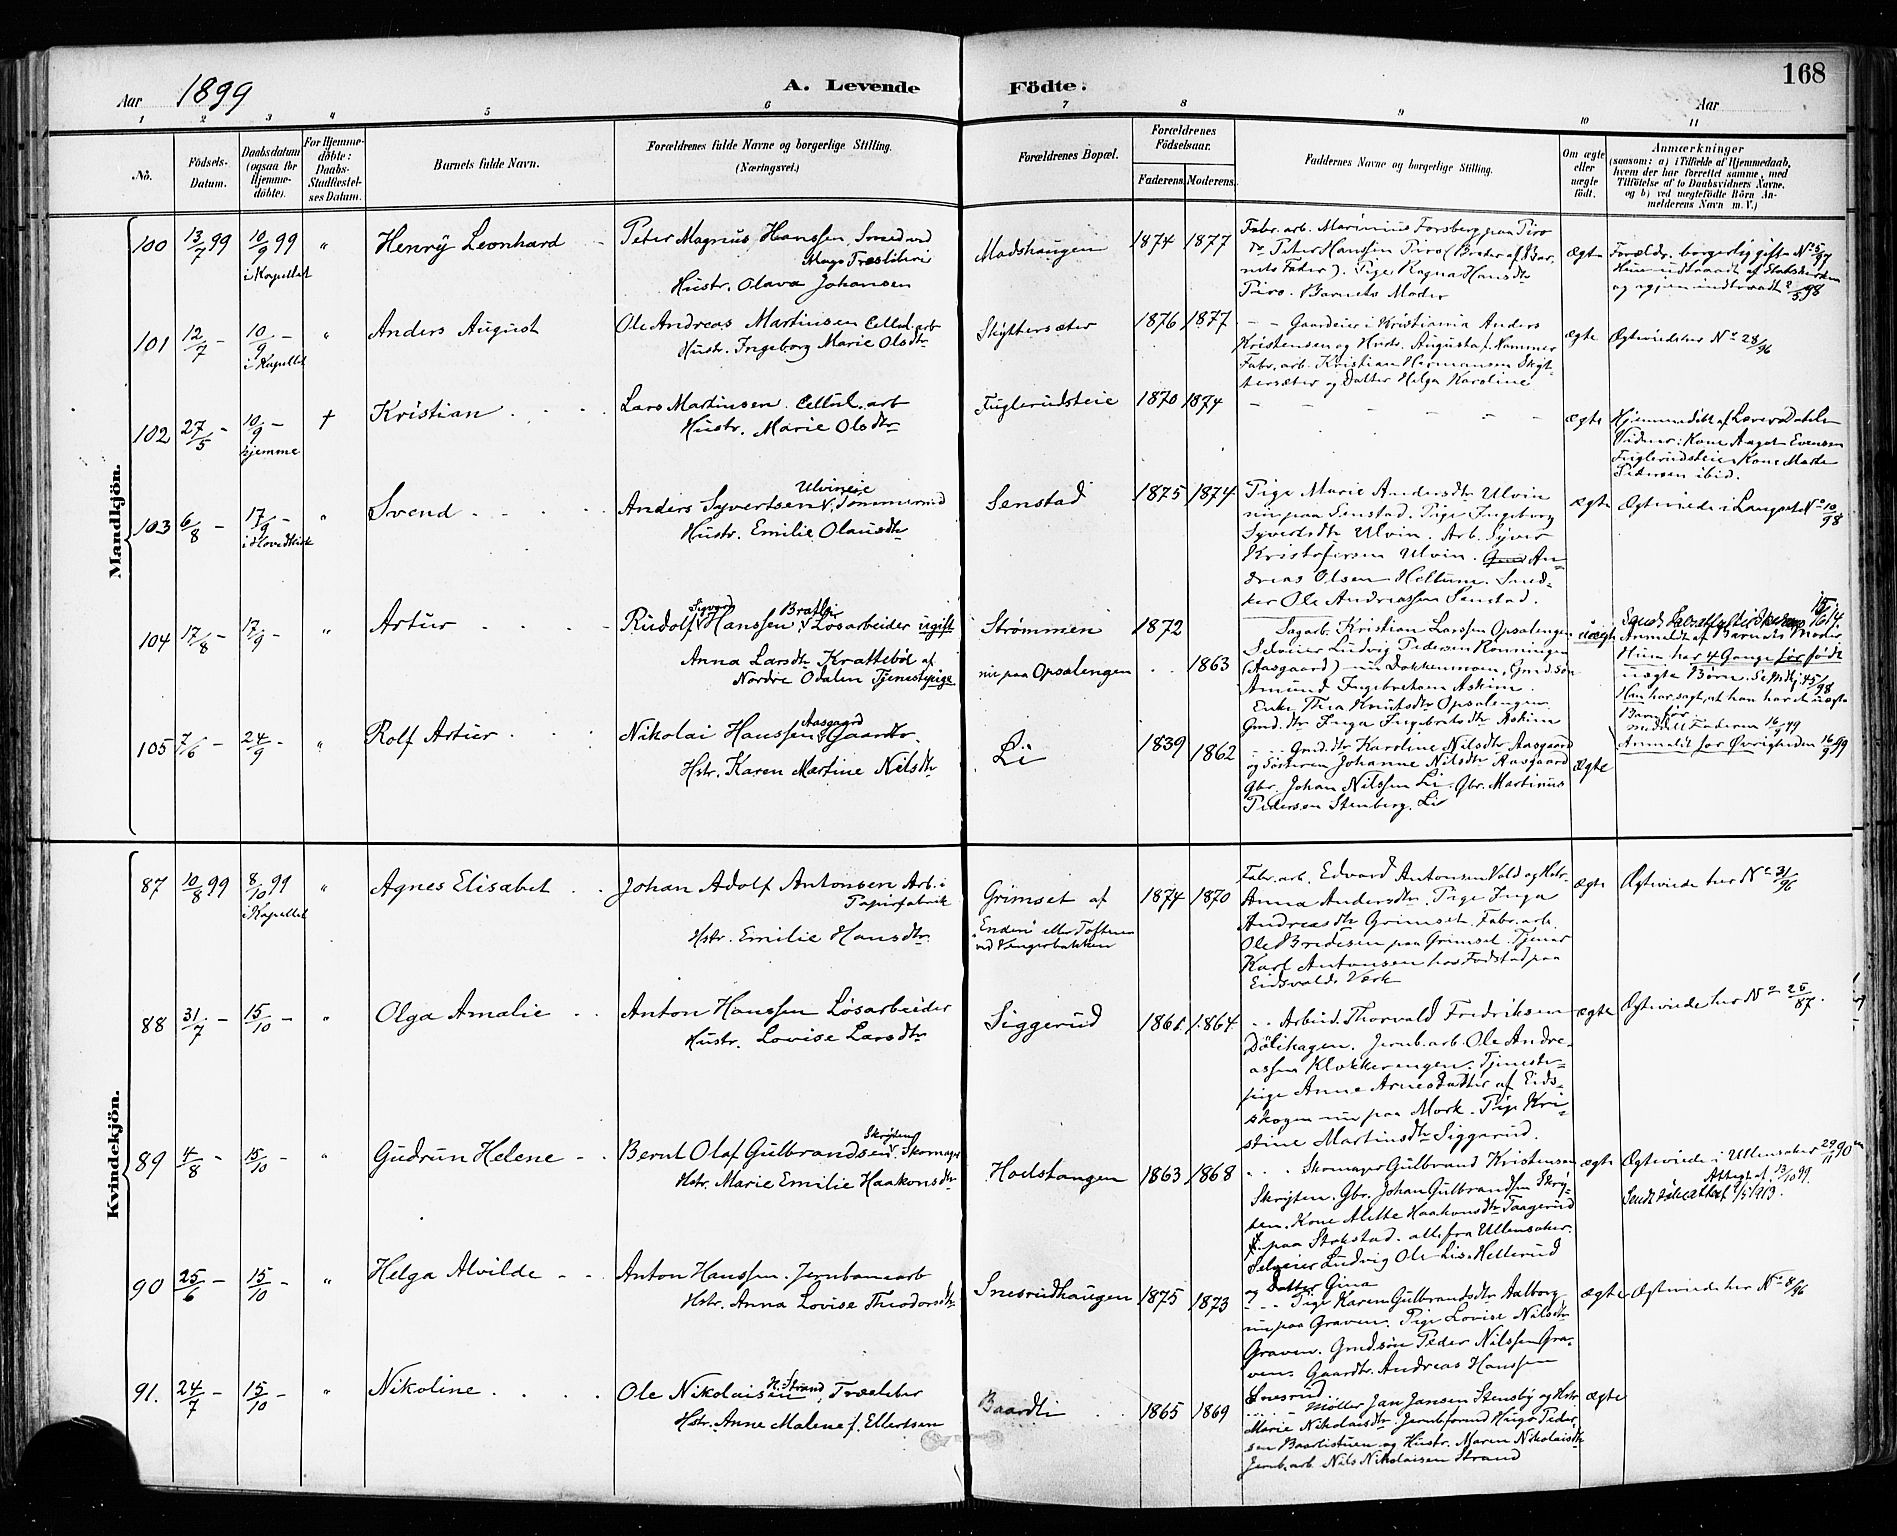 168
Aar 1899
A. Levende
Födte.
Aar
1 2 3 4 5 6 7 8 9 10 11
No.
Födsels-
Datum.
Daabsdatum
(ogsaa for
Hjemme-
döbte).
For Hjemme-
döbte:
Daabs-
Stadfæstel-
ses Datum.
Barnets fulde Navn.
Forældrenes fulde Navne og borgerlige Stilling.
(Næringsvei.)
Forældrenes Bopæl.
Forældrenes
Födselsaar.
Faderens. Moderens.
Faddernes Navne og borgerlige Stilling.
Om ægte
eller
uægte
födt.
Anmærkninger
(saasom: a) i Tilfælde af Hjemmedaab,
hvem der har forrettet samme, med
Tilföielse af to Daabsvidners Navne.
og b) ved uægtefödte Börn An-
melderens Navn m. V.)
Mandkjön.
100 13/7 99 10/9 99 i Kapellet
Henry Leonhard
Peter Magnus Hanssen, Smed ved
Hustr. Olava Johansen
Madshaugen 1874 1877
Fabr. arb. Marinius Forsberg paa Piro
Do Peter Hanssen Piro (Broder af Bar-
nets Fader). Pige Ragna Hansdtr
Piro. Barnets Moder
ægte
Forældr. borgerlig gifte No 5/97
Hun udtraadt af Statskirken
og igjen indtraadt 2/5 98
101 12/7 - 10/9 - i Kapellet
Anders August
Ole Andreas Martinsen Cellul. arb
Hustr. Ingeborg Marie Olsdtr
Skyttersæter 1876 1877
- - Gaardeier i Kristiania Anders
Kristensen og Hustr. Augusta f. Nommer
Fabr. arb. Kristian Hermansen Skyt-
tersæter og Datter Helga Karoline
ægte
Ægteviede her No 28/96
102 27/5 - 10/9 - hjemme †
Kristian
Lars Martinsen. Cellul. arb
Hustr. Marie Olsdtr
Fuglerudsteie 1870 1874
- - - - - -
ægte
Hjemmedøbt af Lærer Dalen
Vidner: Kone Aaget Evensen
Fuglerudsteie Kone Marte
Pedersen ibid.
103 6/8 17/9 - i Hovedkirk
Svend
Ulvineie
Anders Syvertsen v. Tømmermd
Hustr. Emilie Olausdtr
Senstad 1875 1874
Pige Marie Andersdtr Ulvin
nu paa Senstad. Pige Ingeborg
Syvertsdtr Ulvin. Arb. Syver
Kristofersen Ulvin. An-
dreas Olsen Hellum. Sned-
ker Ole Andreassen Senstad.
ægte
Ægteviede i Langset No 10/98
104 17/8 - 17/9 -
Artur
Sigvard Bratli
Rudolf Hanssen v Løsarbeider ugift
Anna Larsdtr Krattebøl af
Nordre Odalen Tjenestepige
Strømmen 1872
nu paa Opsalengen 1863
Sagarb. Kristian Larssen Opsalengen
Selveier Ludvig Pedersen Ronningen
(Aasgaard) nu Dokkenmoen, Gmd. søn
Amund Ingebretsen Askim.
Enke Thea Knutsdtr Opsalengen
Gmd. dtr Inga Ingebretsdtr Askim
uægte
Anmeldt af Barnets Moder
Hun har 4 Gange før født
uægte Børn. Se 45/98
Han har sagt, at han har et uægte
Barn før.
Meddelt Faderen 16/9 99
Anmeldt for Øvrigheden 16/9 99
105 7/6 - 24/9 -
Rolf Artur
Aasgaard
Nikolai Hanssen v Gaardbr.
Hstr. Karen Martine Nilsdtr
Li 1839 1862
- - Gmd. dtr Karoline Nilsdtr Aasgaard
og Søsteren Johanne Nilsdtr Aasgaard
Gbr. Johan Nilssen Li. Gbr. Martinus
Pedersen Stenberg. Li
ægte
Kvindekjön.
87 10/8 99 8/10 99 i Kapellet
Agnes Elisabet
Johan Adolf Antonsen Arb. i
Papirfabrik
Hstr. Emilie Hansdtr.
Grimset af
Enderi eller Toftenn
ved Vengerbakken
1874 1870
Fabr. arb. Edvard Antonsen Vold og Hstr.
Anna Andersdtr. Pige Inga
Andreasdtr Grimset. Fabr. arb.
Ole Bredesen paa Grimset. Tjener
Karl Antonsen hos Fodstad paa
Eidsvolds Verk
ægte
Ægteviede her No 31/96
88 31/7 - 15/10 -
Olga Amalie
Anton Hanssen Løsarbeider
Hustr. Lovise Larsdtr
Siggerud 1861 1864
- - Arbeid. Thorvald Fredriksen
Dölihagen. Jernb. arb. Ole Andre-
assen Klokkerengen. Tjeneste-
pige Anne Arnesdatter af Eids-
skogen nu paa Mork. Pige Kri-
stine Martinsdtr Siggerud.
ægte
Ægteviede her No 25/87.
89 4/8 - 15/10 -
Gudrun Helene
Skrijten
Bernt Olaf Gulbrandsen v. Skomager
Hstr. Marie Emilie Haakonsdtr
Hodstangen 1863 1868
- - - Skomager Gulbrand Kristensen
Skrijten. Gbr. Johan Gulbrandsen Skrij-
ten. Kone Mette Haakonsdtr Taagerud
paa Stokstad. alle fra Ullensaker.
Selveier Ludvig Olsen Lis-Hellerud
og Datter Gina
ægte
Ægteviede i Ullensaker 29/11 90
Attest af 13/10 99.
90 25/6 - 15/10 -
Helga Alvilde
Anton Hanssen. Jernbanearb
Hstr. Anna Lovise Theodorsdtr
Snesrudhaugen 1875 1873
- - - Pige Karen Gulbrandsdtr Aalborg
nu paa Graven. Pige Lovise Nilsdtr
Graven. Gmd. søn Peder Nilssen Gra-
ven. Gaardbr. Andreas Hanssen
Snesrud.
ægte
Ægteviede her No 8/96
91. 24/7 - 15/10 -
Nikoline
N. Strand
Ole Nikolaisen, Træsliber
Hstr. Anne Malene f. Ellertsen
Baardli 1865 1869
Møller Jan Jansen Stensby og Hstr
Marie Nikolaisdtr. Jernbformd Hugo Peder-
sen Baarlistuen og Hustr. Maren Nikolaisdtr
Jernb. arb. Nils Nikolaisen Strand
ægte